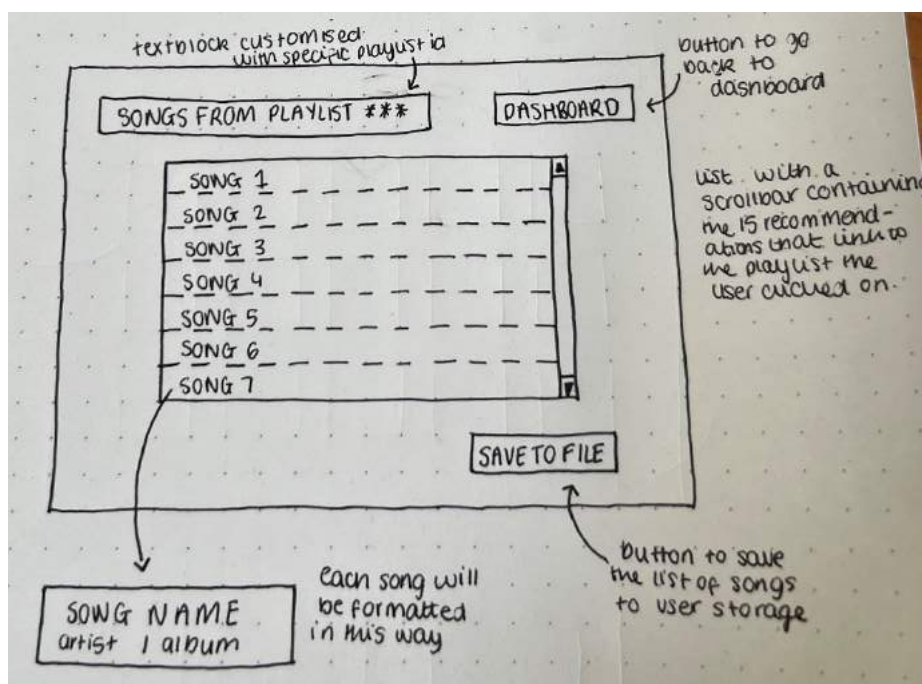 textblock customised
with specific playlist id
button to go
back to
dashboard
SONGS FROM PLAYLIST ***
DASHBOARD
SONG 1
SONG 2
SONG 3
SONG 4
SONG 5
SONG 6
SONG 7
list with a
scrollbar containing
the 15 recommend-
ations that link to
the playlist the
user clicked on.
SAVE TO FILE
button to save
the list of songs
to user storage
SONG NAME
artist | album
each song will
be formatted
in this way